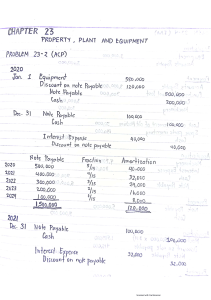 CHAPTER 23
PROPERTY, PLANT AND EQUIPMENT
PROBLEM 23-2 (ACP)
2020
Jan. 1 Equipment 580,000
Discount on note payable 120,000
Note Payable 500,000
Cash 200,000
Dec. 31 Note Payable 100,000
Cash 100,000
Interest Expense 40,000
Discount on note payable 40,000
Note Payable Fraction Amortization
2020 500,000 5/15 40,000
2021 400,000 4/15 32,000
2022 300,000 3/15 24,000
2023 200,000 2/15 16,000
2024 100,000 1/15 8,000
1,500,000 120,000
2021
Dec. 31 Note Payable 100,000
Cash 100,000
Interest Expense 32,000
Discount on note payable 32,000